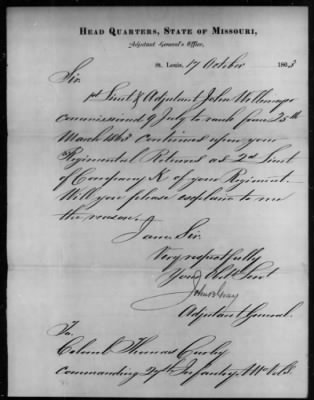 HEAD QUARTERS, STATE OF MISSOURI,
Adjutant General's Office,
St. Louis, 17 October 1863
Sir.
1st Lieut & Adjutant John
commissioned 9 July to rank from 25th
March 1863 continues upon your
Regimental Returns as 2nd Lieut
of Company K of your Regiment.
Will you please explain to me
the reason.
I am Sir.
Very respectfully
Your Obdt Servt
John B Gray
Adjutant General.
To
Colonel Thomas Curly
commanding 27th Infantry, Mo Vols